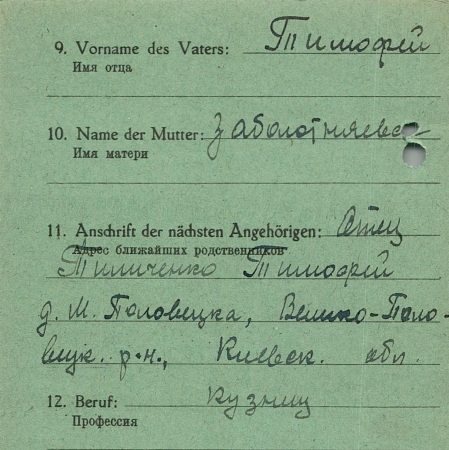 9. Vorname des Vaters: Тимофей
Имя отца
10. Name der Mutter: Заболотняевса
Имя матери
11. Anschrift der nächsten Angehörigen: Отец
Адрес ближайших родственников
Тимченко Тимофей
д. М. Половецка, Велико-Поло-
вецк. р-н., Киевск. обл.
12. Beruf: Кузнец
Профессия